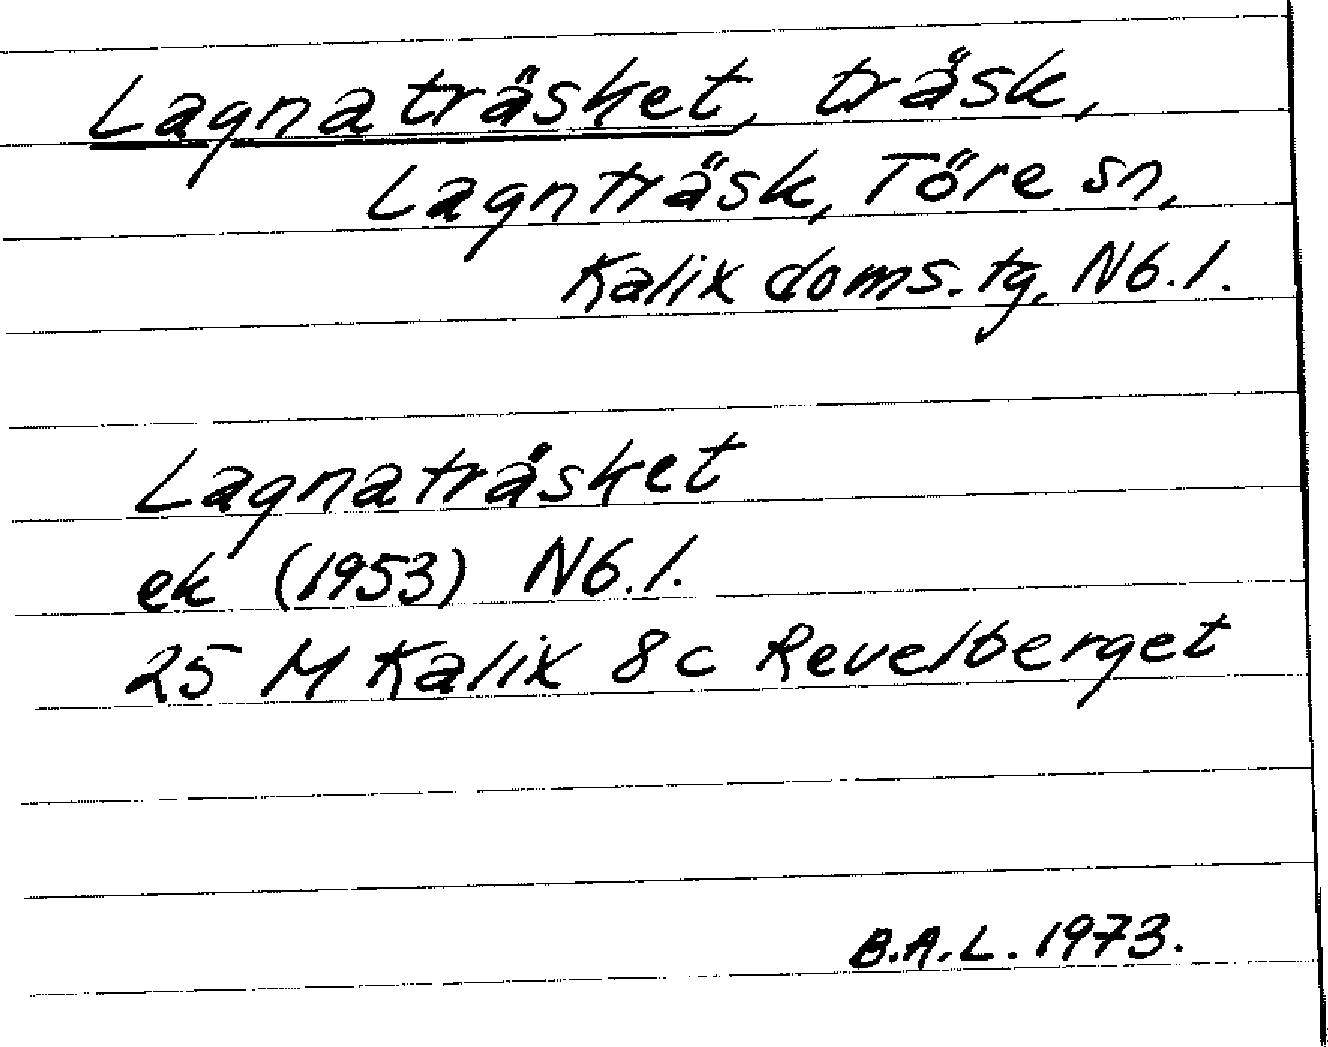 Lagnaträsket, träsk,
Lagnträsk, Töre sn,
Kalix doms. tg, Nb. l.
Lagnaträsket
ek (1953) Nb. l.
25 M Kalix 8c Revelberget
B.A.L. 1973.